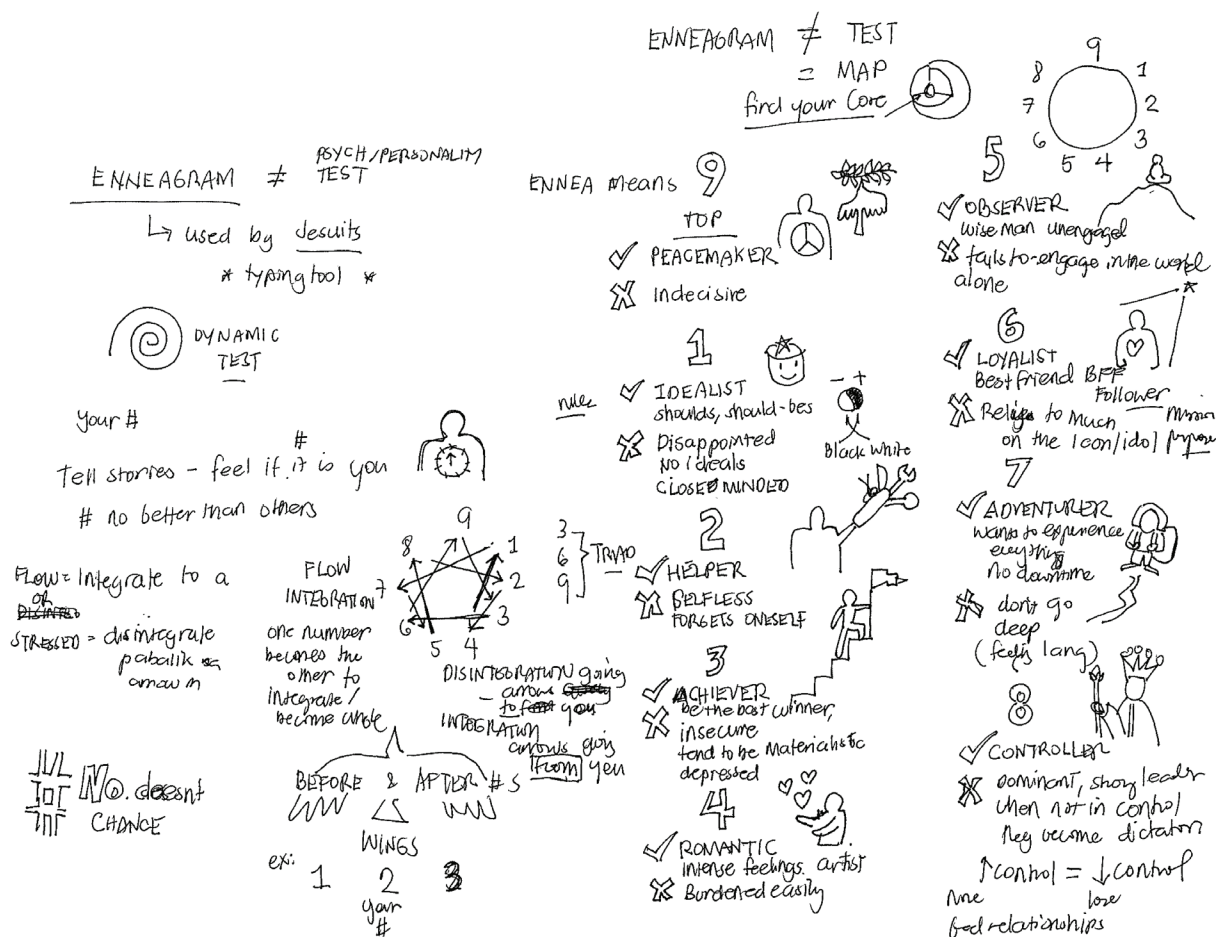 ENNEAGRAM ≠ PSYCH/PERSONALITY
TEST
↳ used by Jesuits
* typing tool *
DYNAMIC
TEST
your #
#
Tell stories - feel if it is you
# no better than others
FLOW = Integrate to a
OR
STRESSED = disintegrate
pabalik sa
arrow
FLOW
INTEGRATION
one number
becomes the
other to
integrate/
become whole
9
8 1
7 2
6 3
5 4
3
6 } TRIAD
9
DISINTEGRATION going
- arrows
to you
INTEGRATION
arrows going
from you
No. doesnt
CHANGE
BEFORE & AFTER #S
WINGS
ex:
1 2 3
your
#
ENNEAGRAM ≠ TEST
= MAP
find your Core
9
8 1
7 2
6 3
5 4
ENNEA means 9
TOP
✓ PEACEMAKER
X Indecisive
1
rules
✓ IDEALIST
shoulds, should-bes
X Disappointed
No ideals
CLOSED MINDED
- +
Black White
2
✓ HELPER
X SELFLESS
FORGETS ONESELF
3
✓ ACHIEVER
be the best winner,
X insecure
tend to be Materialistic
depressed
4
✓ ROMANTIC
intense feelings. artist
X Burdened easily
5
✓ OBSERVER
wise man unengaged
X fails to-engage in the world
alone
6
✓ LOYALIST
Best friend BFF
Follower
X Relies to Much
on the Icon/idol
mission
purpose
7
✓ ADVENTURER
wants to experience
everything
no downtime
X don't go
deep
(feelings lang)
8
✓ CONTROLLER
X dominant, strong leader
when not in control
they become dictators
↑ control = ↓ control
lose
relationships